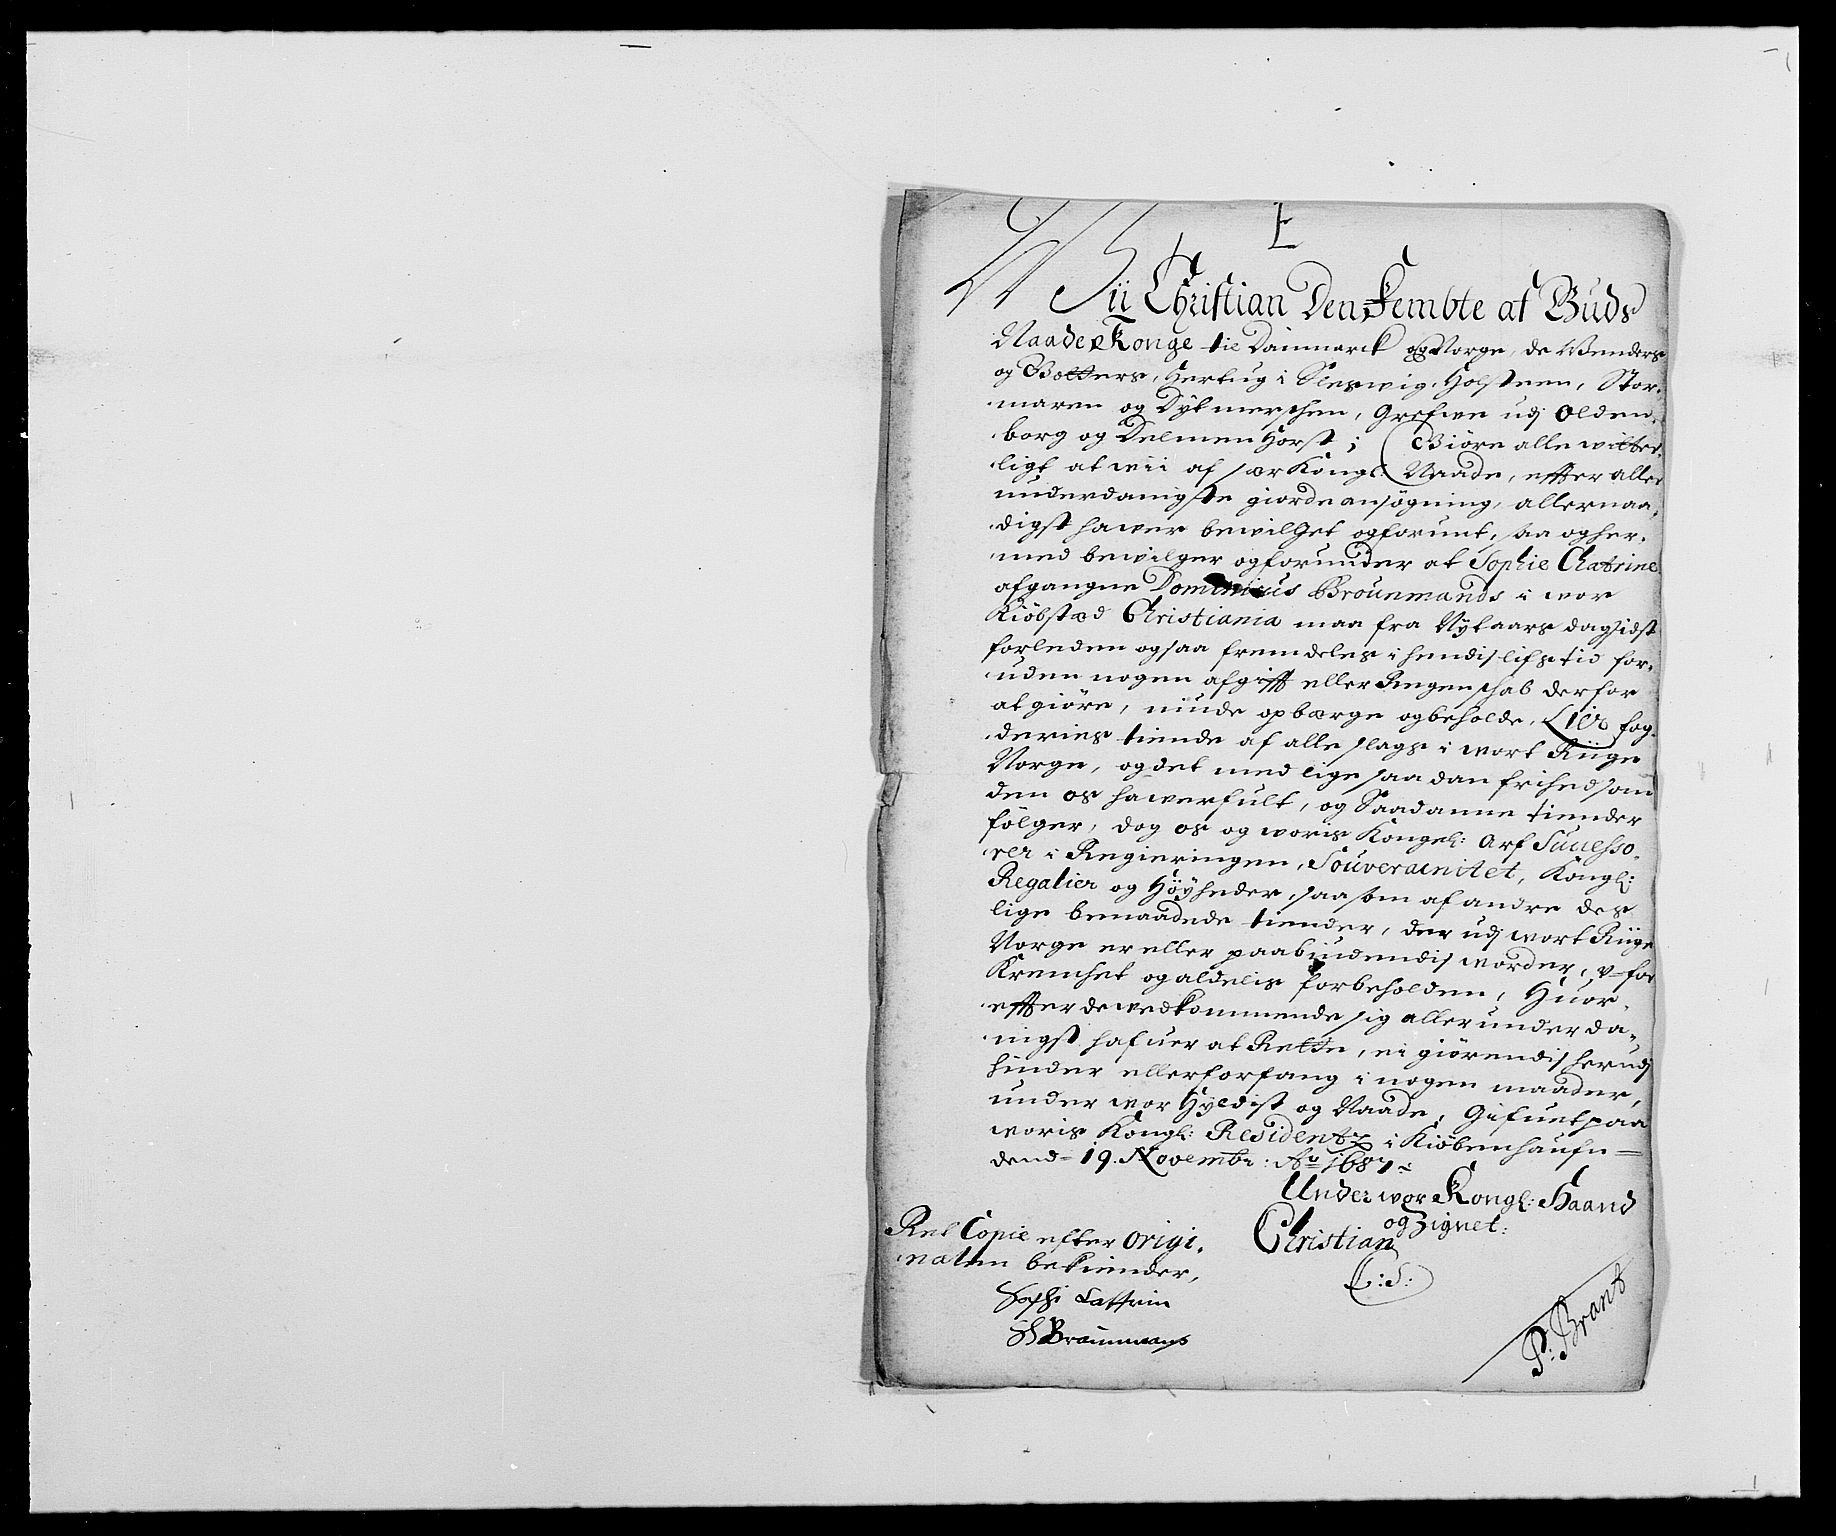 E
Wii Christian Den Fembte at Guds
Naade Konge til Danmarck og Norge, de Wenders
og Gotters, Hertug i Sleswig, Holsteen, Stor-
maren og Dytmerschen, Grefwe udj Olden-
borg og Delmenhorst; Giöre alle witter-
ligt at wii af sær Kongl Naade, effter aller
underdanigste giorde ansögning, allernaa-
digst hawer bewilget og forunt, saa og her-
med bewilger og forunder at Sophie Chatrine
afgangne Dominicus Brounmands i wor
Kiöbstæd Christiania maa fra Nytaars dag sidst
forleden og saa fremdeles i hendis lifs tid for-
uden nogen afgifft eller Regenschab derfor
at giöre, niude opbærge og beholde, Lier fog-
deries tiende af alle slags i wort Riige
Norge, og det med lige saadan frihed som
den os hawer fult, og Saadanne tiender
fölger, dog os og woris Kongel: Arf Successo-
rer i Regieringen, Souverainitet, Kongl:
Regalier og Höyheder, saa som af andre des
lige benaadede tiender, der udj wort Riige
Norge er eller paabiudendis worder, v-for
Krenchet og aldelis forbeholden, Huor-
effter de wedkommende sig allerunderda-
nigst hafuer at Rette, ei giörendis herudj
hinder eller forfang i nogen maader,
under wor Hyldist og Naade, Gifuet paa
woris Kongl: Residentz i Kiöbenhaufn
dend 19. Novembr: Ao 1687
Under wor Kongl: Haand
og Zignet:
Christian
L:S:
Ret Copie efter Origi-
nalen bekiender,
Sophi Cattrin
Sl Braunmans
P: Brant